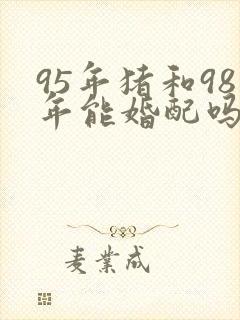 95年猪和98
年能婚配吗
麦业成